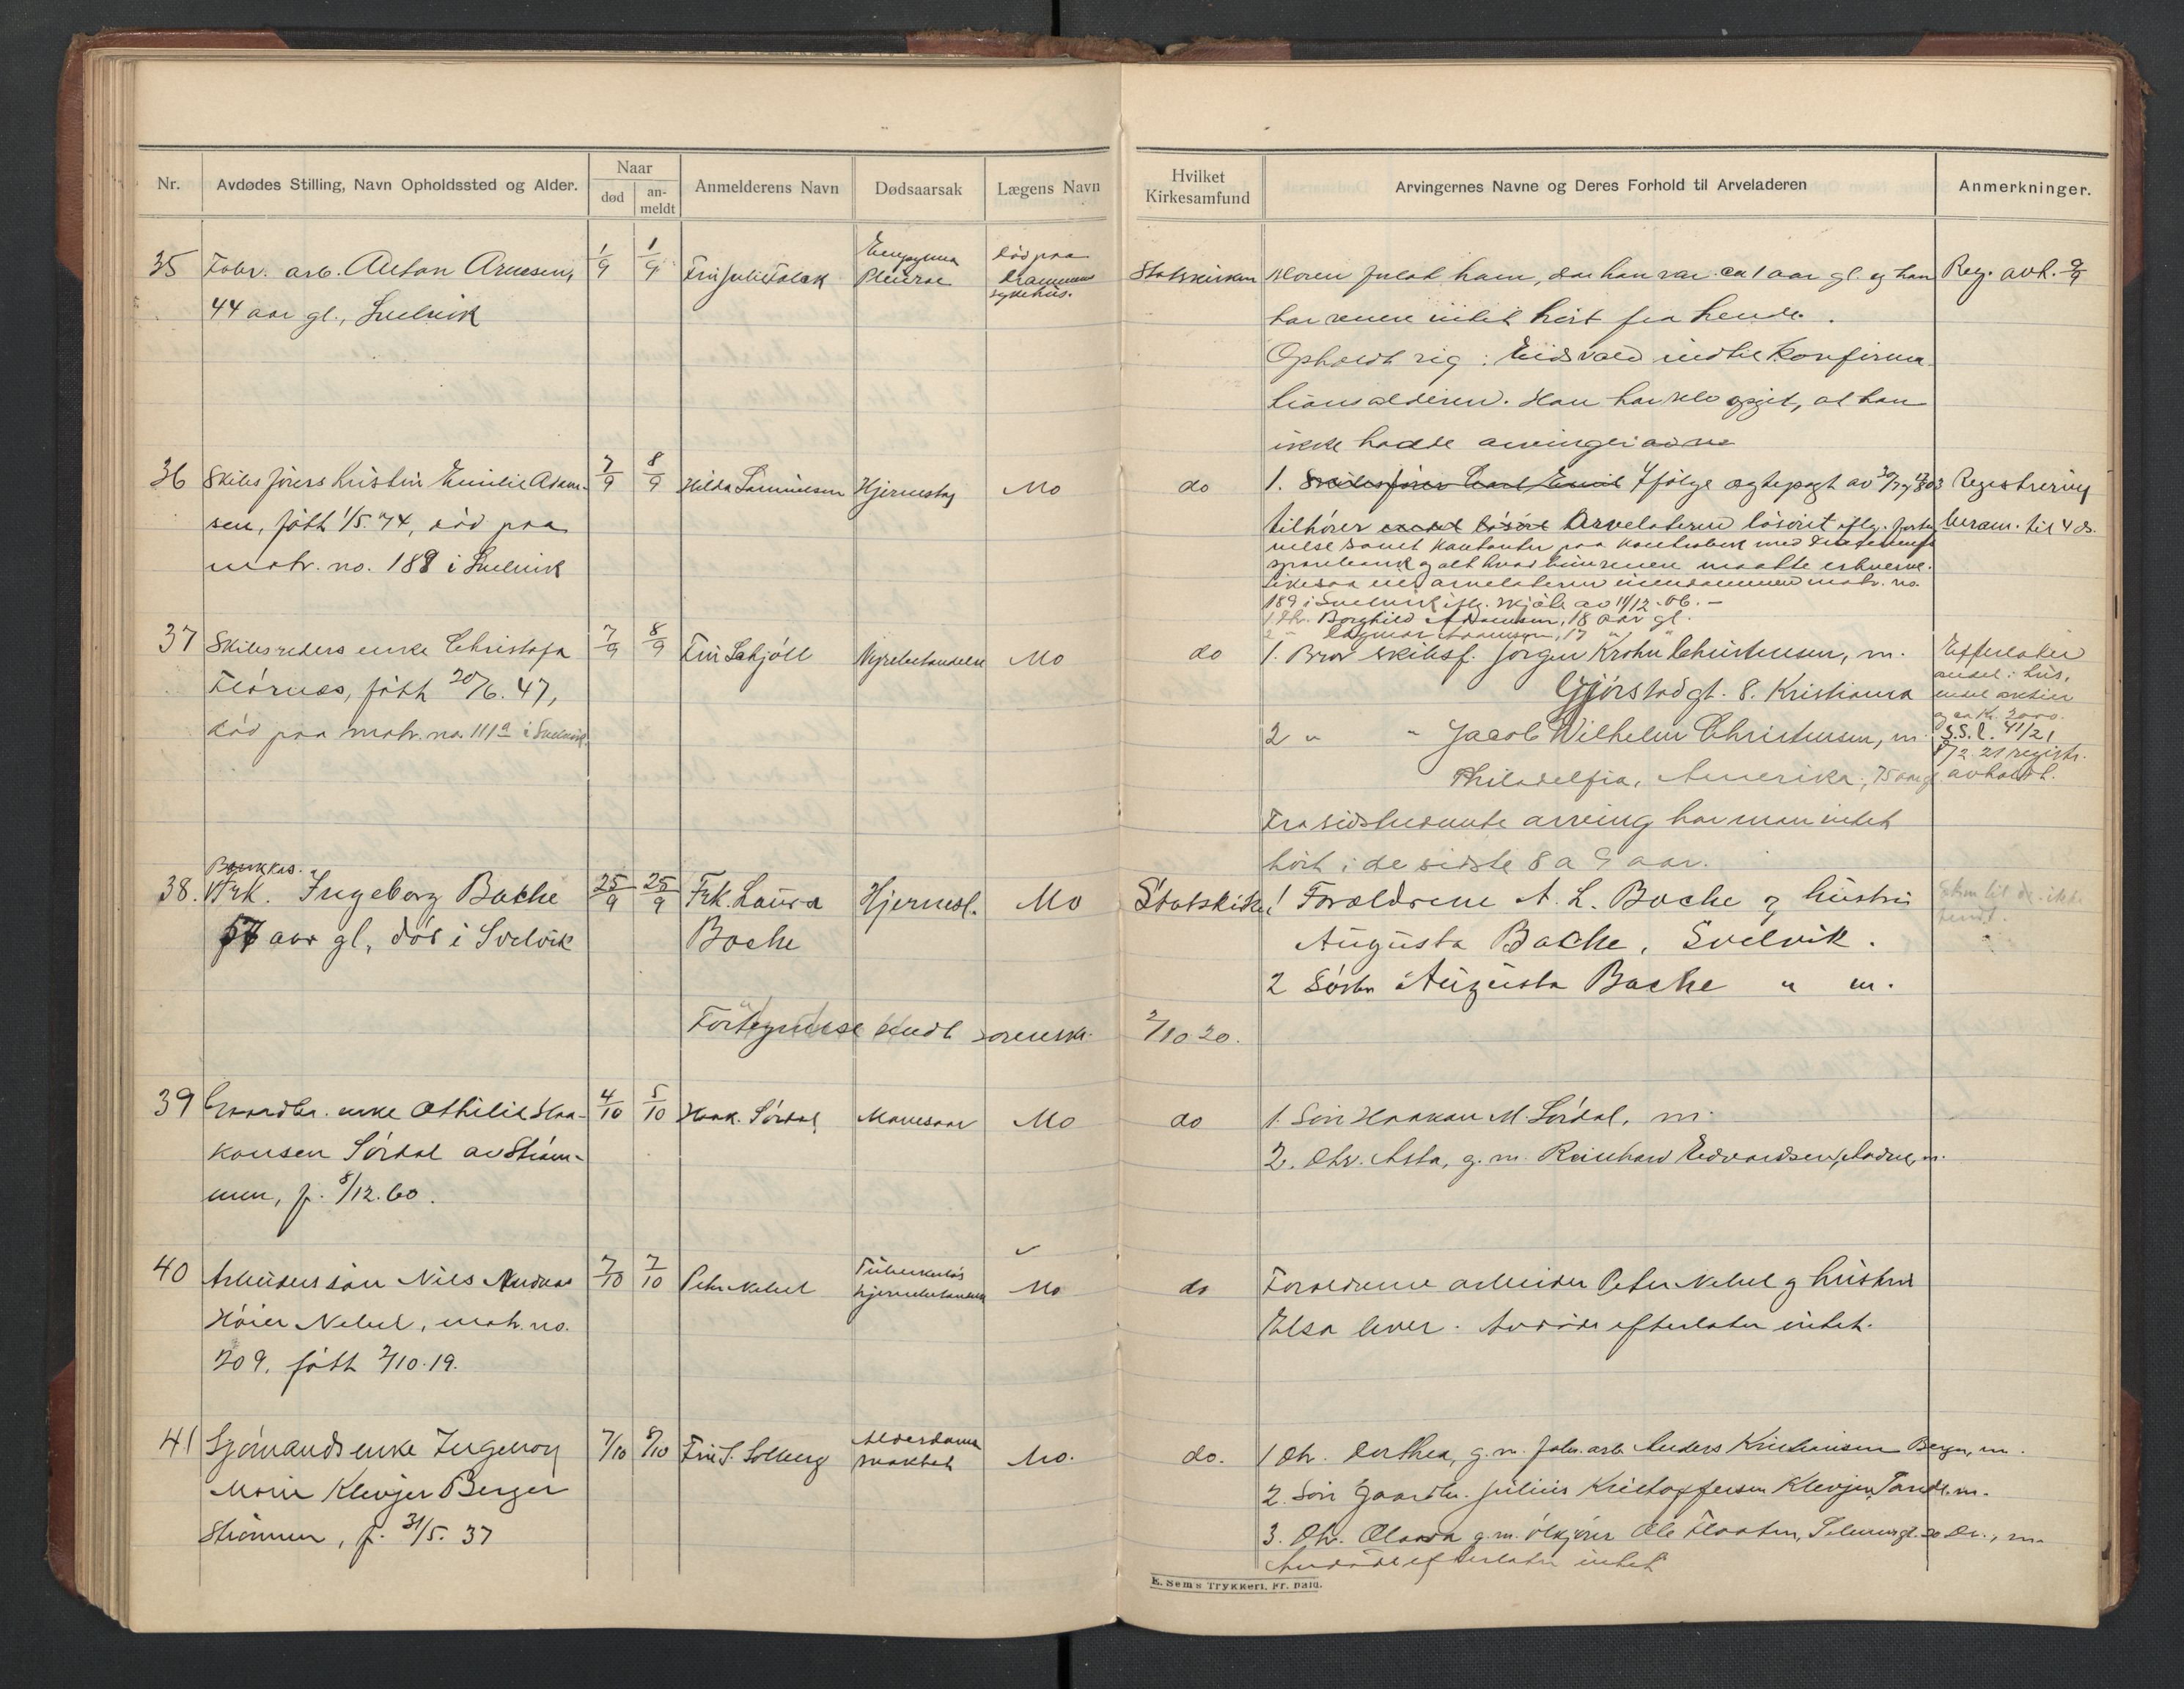 Nr.
Avdødes Stilling, Navn Opholdssted og Alder.
Naar
død
an-
meldt
Anmelderens Navn
Dødsaarsak
Lægens Navn
Hvilket
Kirkesamfund
Arvingernes Navne og Deres Forhold til Arveladeren
Anmerkninger.
35
Fabr. arb. Anton Arnesen,
44 aar gl., Svelvik
1/9
1/9
Empyema
Pleurae
død paa
Drammens
sykehus.
Statskirken
Moren forlot ham, da han var ca 1 aar gl. og han
har senere intet hørt fra hende.
Opholdt sig i Eidsvold indtil konfirma
tionsalderen. Han har selv opgit, at han
ikke hadde arvinger
Reg. avh. 9/9
36
Skibsførers hustru Emilie Adam-
sen, født 1/5. 74, død paa
matr. no. 188 i Svelvik
7/9
8/9
Hilda Samuelsen
Hjerneslag
Mo
do
1. Skibsfører Carl Emil Ifølge ægtepagt av
tilhører Arveladeren løsøret iflg. forteg
nelse samt kontanter paa
sparebank og alt hvad hun senere maatte erhverve.
Likesaa eier arveladeren eiendommen matr. no.
189 i Svelvik iflg. skjøte av 11/12.06. —
1 Dtr. Borghild Adamsen, 18 aar gl.
2 " Dagmar Adamsen, 17 " "
Registrering
beram. til 4 ds.
37
Skibsreders enke Christofa
Flørnes, født 20/6. 47,
død paa matr. no. 111a i Svelvik.
7/9
8/9
Fru Schjøll
Nyrebetændelse
Mo
do
1. Bror skibsf. Jørgen Krohn Christensen, m.
Gjørstadgt. 8. Kristiania
2 " " Jacob Wilhelm Christensen, m.
Philadelfia, Amerika, 75 aar gl.
Fra sidstnevnte arving har man intet
hørt i de sidste 8 a 9 aar.
Efterlater
andel i hus,
endel aktier
og ca Kr. 2000.
S.S.l. 41/21
registr.
avholdt.
38.
Bankkas.
Frk. Ingeborg Bache
57 aar gl, død i Svelvik
25/9
25/9
Frk. Laura
Bache
Hjernesl.
Mo
Statskirken
1 Forældrene A. L. Bache og hustru
Augusta Bache, Svelvik.
2 Søster Augusta Bache " m.
Fortegnelse sendt sorenskr.
2/10 20.
39
Gaardbr. enke Othilie Haa-
konsen Sørdal av Strøm-
men, f. 8/12. 60.
4/10
5/10
Haak. Sørdal
Mavesaar
Mo
do
1. Søn Haakon M. Sørdal, m.
2. Dtr. Asta, g. m. Reinhard Edvardsen,
40
Arbeiders søn Nils Andreas
Høier Nebel, matr. no.
209, født 2/10. 19.
7/10
7/10
Peter Nebel
Tuberkuløs
hjernebetændelse
Mo
do
Forældrene arbeider Peter Nebel og hustru
Elsa lever. Avdøde efterlater intet.
41
Sjømands enke Ingeborg
Marie Klevjer Berger
Strømmen, f. 31/5. 37
7/10
8/10
Fru S. Solberg
Alderdoms
svakhet
Mo.
do.
1 Dtr. Dorthea, g. m. fabr. arb. Anders Kristiansen Berger, m.
2. Søn Gaardbr. Julius Kristoffersen Klevjer, Sande. m.
3. Dtr. Olava g. m. Ole Flaaten,
Avdøde efterlater intet
E. Sem's Trykkeri, Fr. hald.